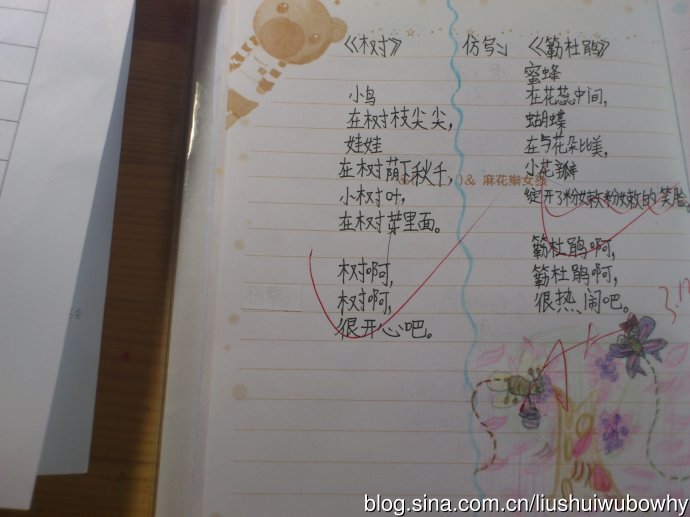 《树》
小鸟
在树枝尖尖，
娃娃
在树荫下秋千，
小树叶，
在树芽里面。
树啊，
树啊，
很开心吧。
仿写：《簕杜鹃》
蜜蜂
在花蕊中间，
蝴蝶
在与花朵比美，
小花瓣
绽开了粉嫩粉嫩的笑脸。
簕杜鹃啊，
簕杜鹃啊，
很热闹吧。
& 麻花辫女孩
blog.sina.com.cn/liushuiwubowhy